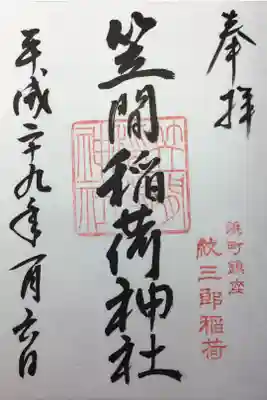 奉拝
浜町鎮座
紋三郎稲荷
笠間稲荷神社
平成二十九年一月六日